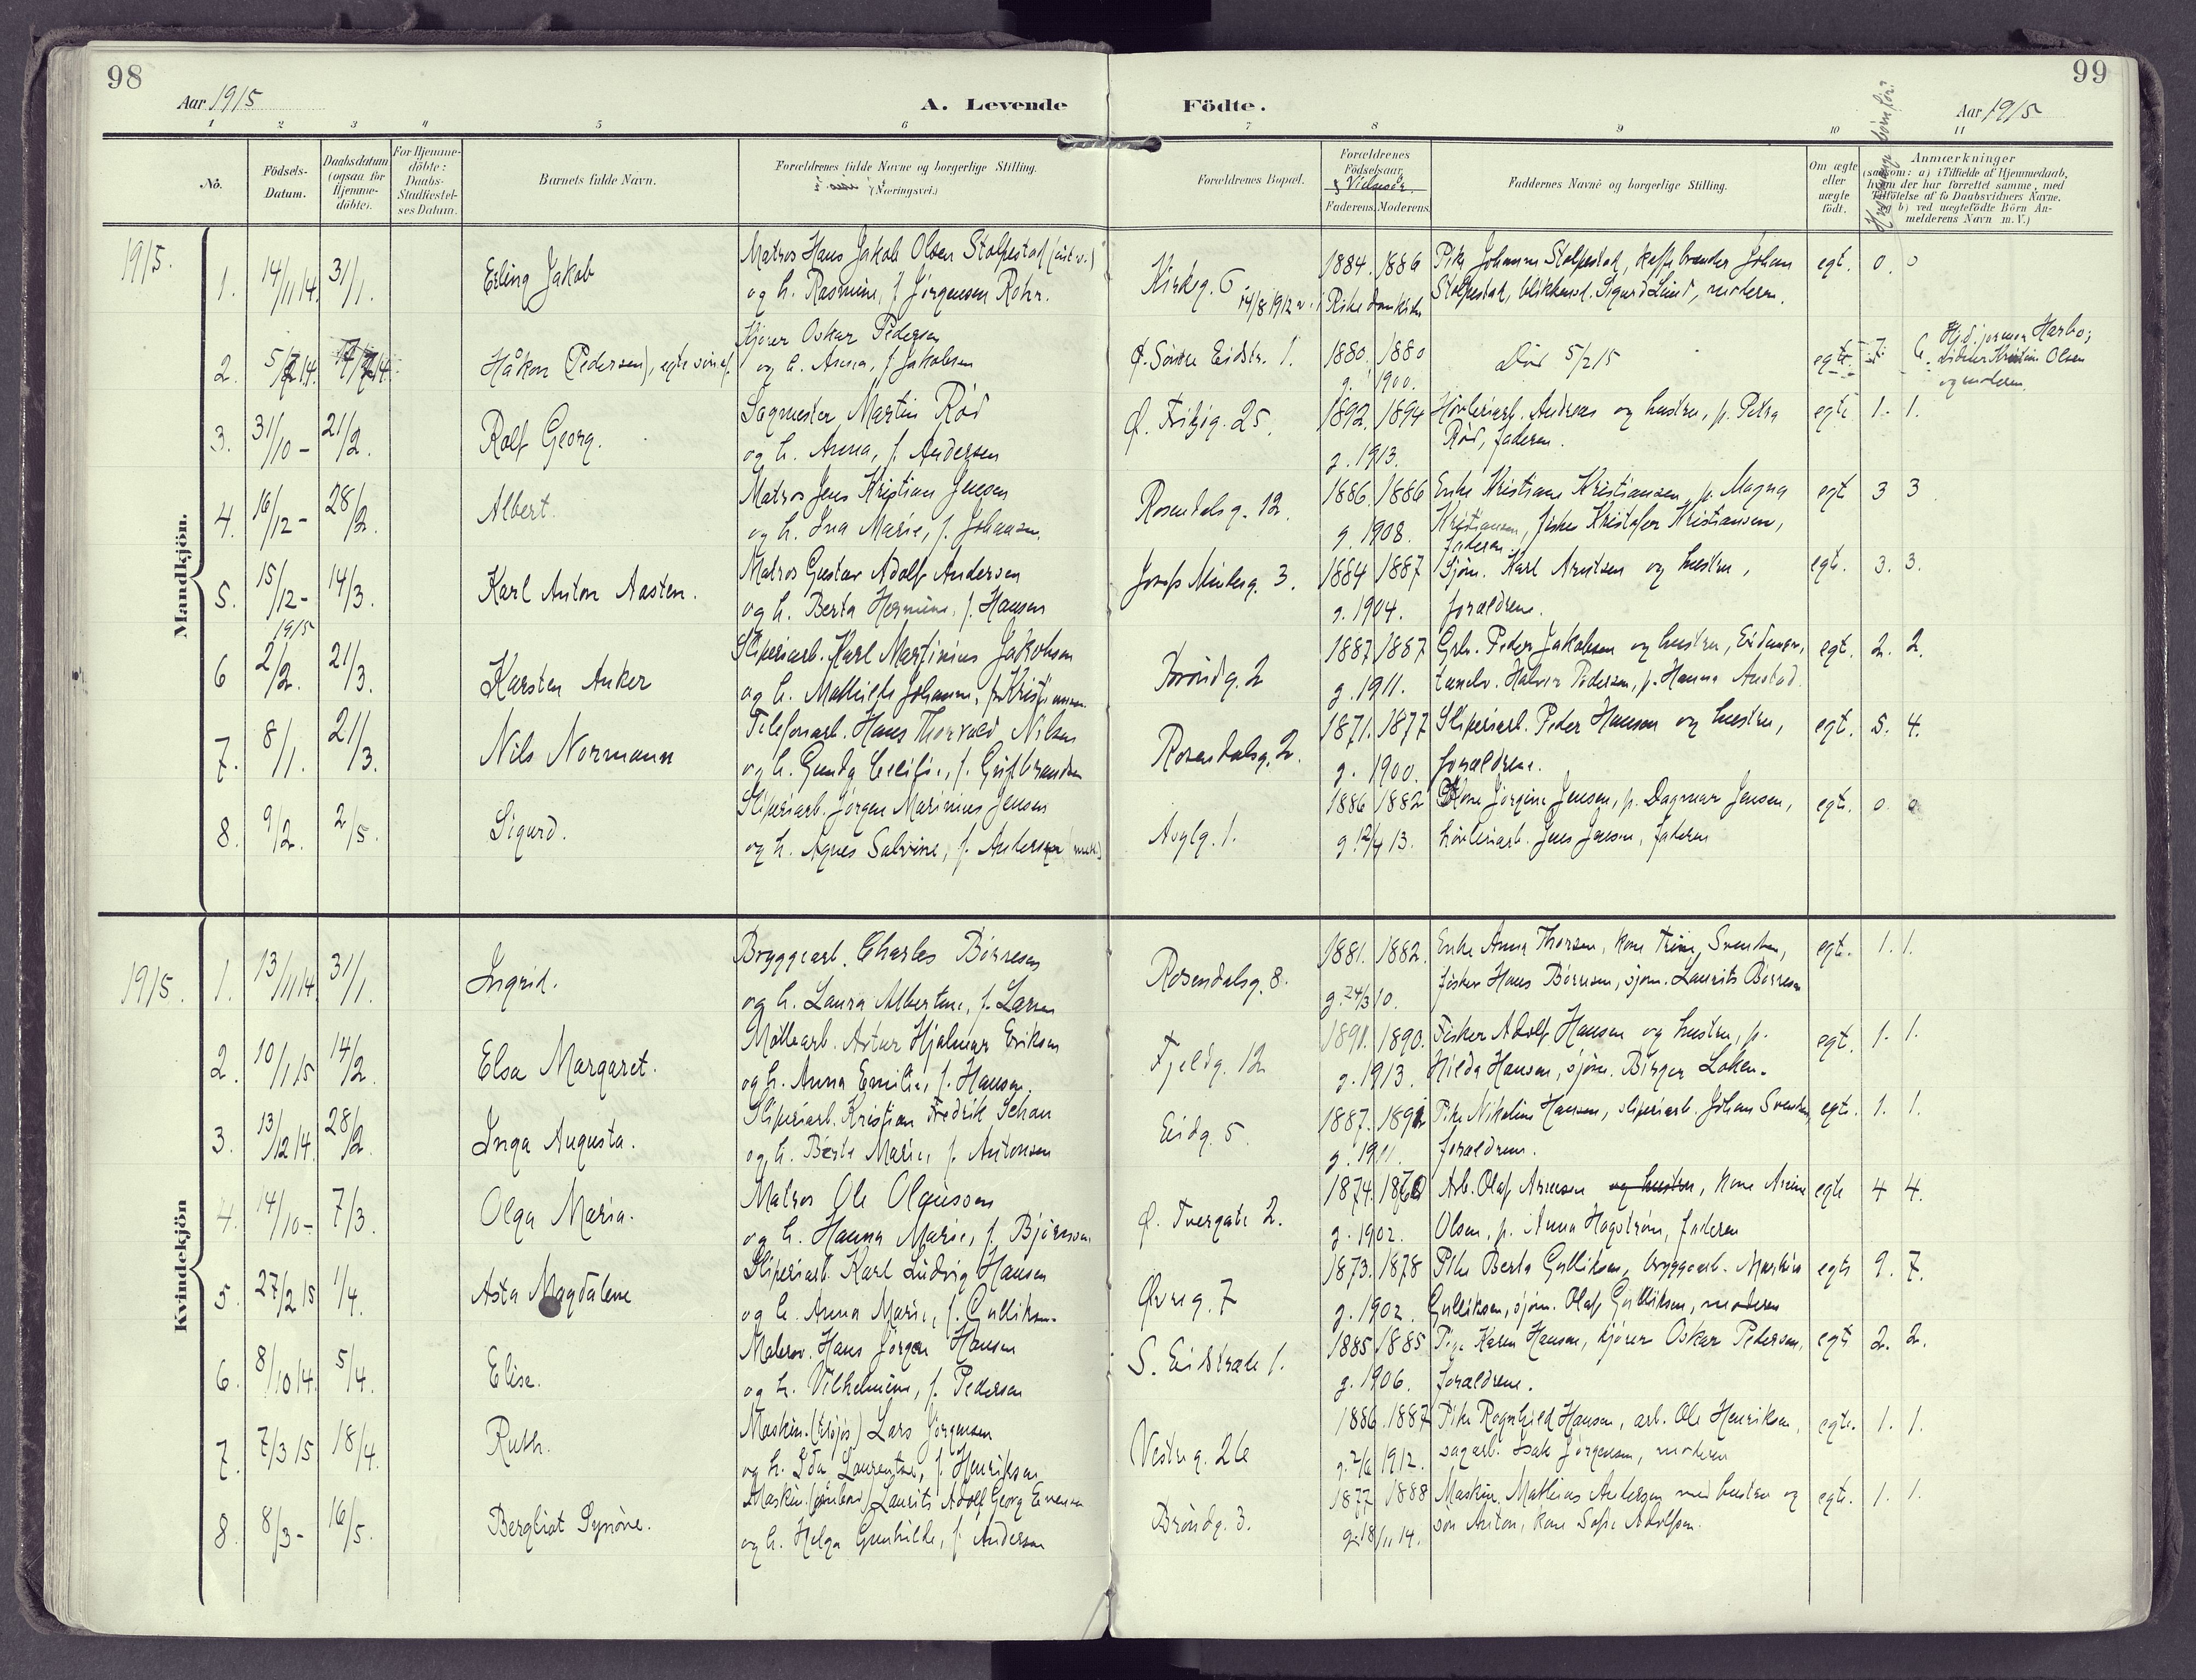 98
Aar 1915
A. Levende
Födte.
Aar 1915
99
1 2 3 4 5 6 7 8 9 10 11
No.
Födsels-Datum.
Daabsdatum (ogsaa for Hjemme-döbte).
For Hjemme-döbte: Daabs-Stadfæstel-ses Datum.
Barnets fulde Navn.
Forældrenes fulde Navne og borgerlige Stilling (Næringsvei.)
Forældrenes Bopæl.
Forældrenes Födselsaar
Faderens. Moderens.
Faddernes Navne og borgerlige Stilling.
Om ægte eller uægte födt.
Anmærkninger
(saasom: a) i Tilfælde af Hjemmedaab, hvem der har forrettet samme, med Tilföielse af to Daabsvidners Navne. og b) ved uægtefödte Börn An-melderens Navn m. V.)
Mandkjön.
1915.
1. 14/11 14. 31/1. Erling Jakob
Matros Hans Jakob Olsen Stolpestad
og h. Rasmine, f. Jörgensen Rohr.
Kirkeg. 6 14/8 1912
1884. 1886
Pike Johanne Stolpestad, Johan
Stolpestad, blikkensl. Sigurd Lund, moderen.
egt. 0. 0
2. Håkon (Pedersen),
Kjører Oskar Pedersen
og h. Anna, f. Jakobsen
Ø. Söndre Eidstr. 1.
1880. 1880
g. 1900.
Död 5/2 15
egte. 7. 6.
Hj.d. jormor Harbo;
Kristin Olsen
og moderen.
3. 31/10 - 21/2. Rolf Georg.
Sagmester Martin Röd
og h. Anna, f. Andersen
Ø. Frikjg. 25.
1892. 1894
g. 1913.
Hövleriarb. Andreas og hustru, p. Petra
Röd, faderen.
egte 1. 1.
4. 16/12 - 28/2. Albert.
Matros Jens Kristian Jensen
og h. Ina Marie, f. Johansen.
Rosendalsg. 12.
1886. 1886
g. 1908.
Enke Kristiane Kristiansen, p. Magna
Kristiansen, fisker Kristofer Kristiansen,
faderen
egt. 3 3.
5. 15/12 - 14/3. Karl Anton Aasten.
Matros Gustav Adolf Andersen
og h. Berta Hermine, f. Hansen
1884 1887
g. 1904.
Sjöm. Karl Arntsen og hustru,
forældrene.
egt. 3. 3.
1915
6 2/2. 21/3. Karsten Anker
Sliperiarb. Karl Martinius Jakobsen
og h. Mathilde Johanne,
2
1887 1887
g. 1911.
Peder Jakobsen og hustru,
Halvor Pedersen, p. Hanna
egt. 2. 2.
7. 8/1. 21/3. Nils Normann
Telefonarb. Hans Thorvald Nilsen
og h. Gunda Cecilie, f. Gulbrandsen
Rosendalsg. 2.
1871. 1877
g. 1900.
Sliperiarb. Peder Hansen og hustru,
forældrene.
egt. 5. 4.
8. 9/2. 2/5. Sigurd.
Sliperiarb. Jörgen Marinius Jensen
og h. Agnes Salvine, f. Andersen
1.
1886 1882
g. 12/4 13.
Kone Jörgine Jensen, p. Dagmar Jensen,
hövleriarb. Jens Jensen, faderen
egt. 0. 0.
Kvindekjön
1915.
1. 13/11 14. 31/1. Ingrid.
Bryggearb. Charles Börresen
og h. Laura Albertine, f. Larsen
Rosendalsg. 8.
1881. 1882.
g. 24/3 10.
Enke Anna Thorsen, kone Trine Svendsen,
fisker Hans Börresen, sjöm. Laurits Börresen
egt. 1. 1.
2. 10/1 15 14/2. Elsa Margaret.
Möllearb. Artur Hjalmar Eriksen
og h. Anna Emilie, f. Hansen.
Fjeldg. 12
1891. 1890.
g. 1913.
Fisker Adolf Hansen og hustru, p.
Hilda Hansen, sjöm. Birger Loken.
egt. 1. 1.
3. 13/12 14. 28/2. Inga Augusta.
Sliperiarb. Kristian Fredrik Schau
og h. Berte Marie, f. Antonsen
Eidg. 5.
1887.
g. 1911.
Pike Nikoline Hansen, sliperiarb. Johan Svendsen,
forældrene.
egte. 1. 1.
4. 14/10 - 7/3. Olga Maria.
Matros Ole Olaussen
og h. Hanna Marie, f. Björnsen.
Ø. Tvergate 2.
1874.
g. 1902.
Arb. Olaf Arnesen og hustru, kone
Olsen, p. Anna Hagström, faderen
egte 4 4.
5. 27/2 15 1/4. Asta Magdalene
Sliperiarb. Karl Ludvig Hansen
og h. Anna Marie, f. Gulliksen.
Øvreg. 7
1873. 1878
g. 1902.
Pike Berta Gulliksen, bryggearb. Martin
Gulliksen, sjöm. Olaf Gulliksen, moderen
egte 9. 7.
6. 8/10 14. 5/4. Elise.
Malersv. Hans Jörgen Hansen
og h. Vilhelmine, f. Pedersen
S. Eidstræde 1.
1885 1885
g. 1906.
Pige Karen Hansen, kjörer Oskar Pedersen,
forældrene.
egte 2. 2.
7. 7/3 15 18/4. Ruth.
Maskin. (tilsjös) Lars Jörgensen
og h. Ida Laurentze, f. Henriksen
Vestreg. 26
1886. 1887
g. 2/6 1912.
Pike Ragnhild Hansen, arb. Ole Henriksen,
sagarb. Isak Jörgensen, moderen
egte. 1. 1.
8. 8/3 - 16/5. Bergliot Synöve.
Maskin. Laurits Adolf Georg Evensen
og h. Helga Gunhilde, f. Andersen
Bröndg. 3.
1877 1888
g. 18/11 14.
Maskin. Mathias Andersen med hustru og
sön Anton, kone Sofie Adolfsen.
egte. 1. 1.